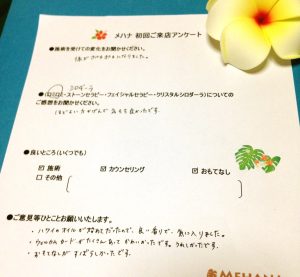 メハナ 初回ご来店アンケート
●施術を受けての変化をお聞かせください。
シロダーラ
ストーンセラピー・フェイシャルセラピー・クリスタルシロダーラ)についての
ご感想をお聞かせください。
●良いところ(いくつでも)
☑ 施術 ☑ カウンセリング ☑ おもてなし
□ その他
●ご意見等ひとことお願いいたします。
・ハワイのオイルが初めてだったので、良い香りで、気に入りました。
・ウェルカムボードがたくさんあってかわいかったです。うれしかったです。
・おもてなしがすばらしかったです。
MEHANA